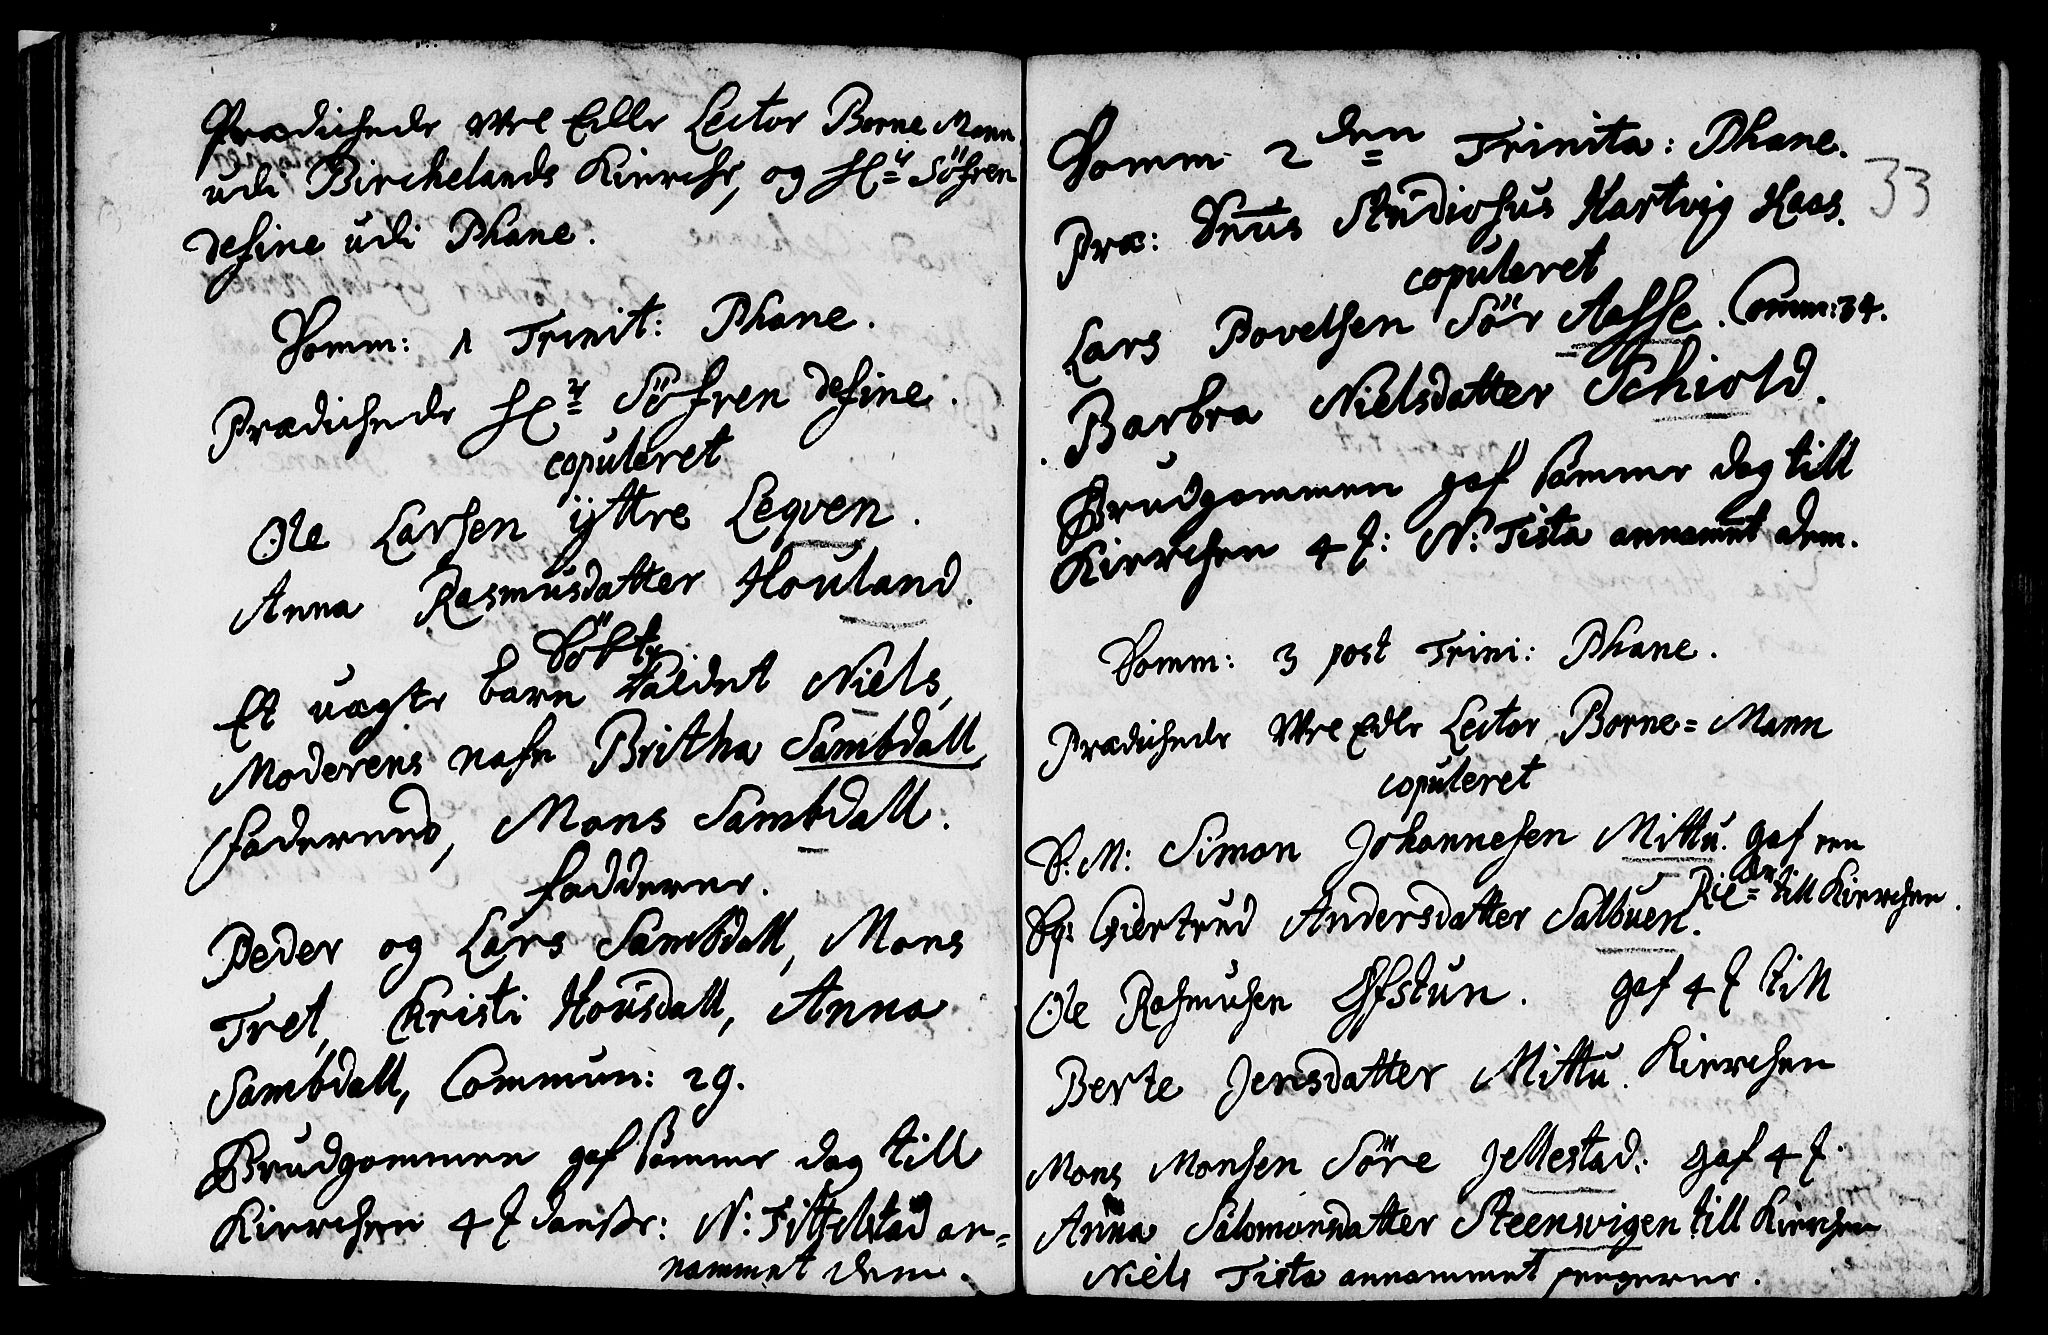 Prædichede WelEdle Lector Borne Mann
udi Birchelands Kirche, og Hr Söfren
define udi Phane.
Domm: 1 Trinit: Phane.
Prædichede Hr Söfren define.
copuleret
Ole Larsen ÿttre Leqven.
Anna Rasmusdatter Houland.
Döbt
Et uægte barn kaldet Niels,
Moderens nafn Britha Sambdall
faderens, Mons Sambdall.
fadderne.
Peder og Lars Sambdall, Mons
Tret, Christi Housdall, Anna
Sambdall, Commun: 29.
Brudgommen gaf samme dag till
Kirchen 4 ß danske: N: Tittelstad an=
nammet dem.
33
Domm 2den Trinita: Phane.
Præ: Dnus Studiosus Hartvig Kaas.
copuleret
Lars Povelsen Sör Aasse. Comm: 34.
Barbra Nielsdatter Schiold.
Brudgommen gaf samme dag till
Kirchen 4 ß: N: Tista annammet dem.
Domm: 3 post Trini: Phane.
Prædichede WelEdle Lector Borne=Mann
copuleret
D: M: Simon Johannesen Mittu. gaf een
Rix=dr till Kirchen.
Dq: Giertrud Andersdatter Salbuen.
Ole Rasmusen Øfstun. gaf 4 ß till
Berte Jensdatter Mittu. Kirchen
Mons Monsen Söre Jellestad: gaf 4 ß.
Anna Salomonsdatter Steensvigen till Kirchen
Niels Tista annammet pengene.